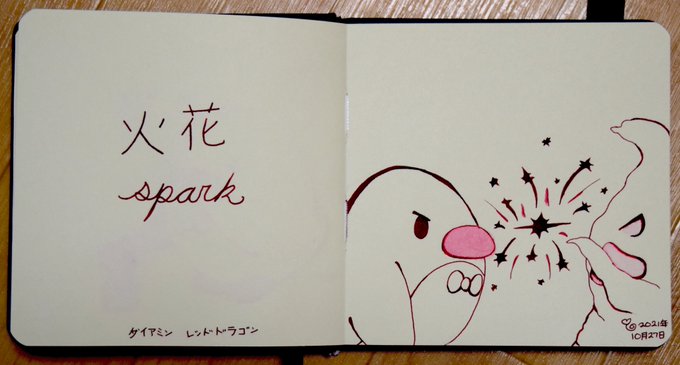 火花
spark
ダイアミン レッドドラゴン
2021年
10月27日